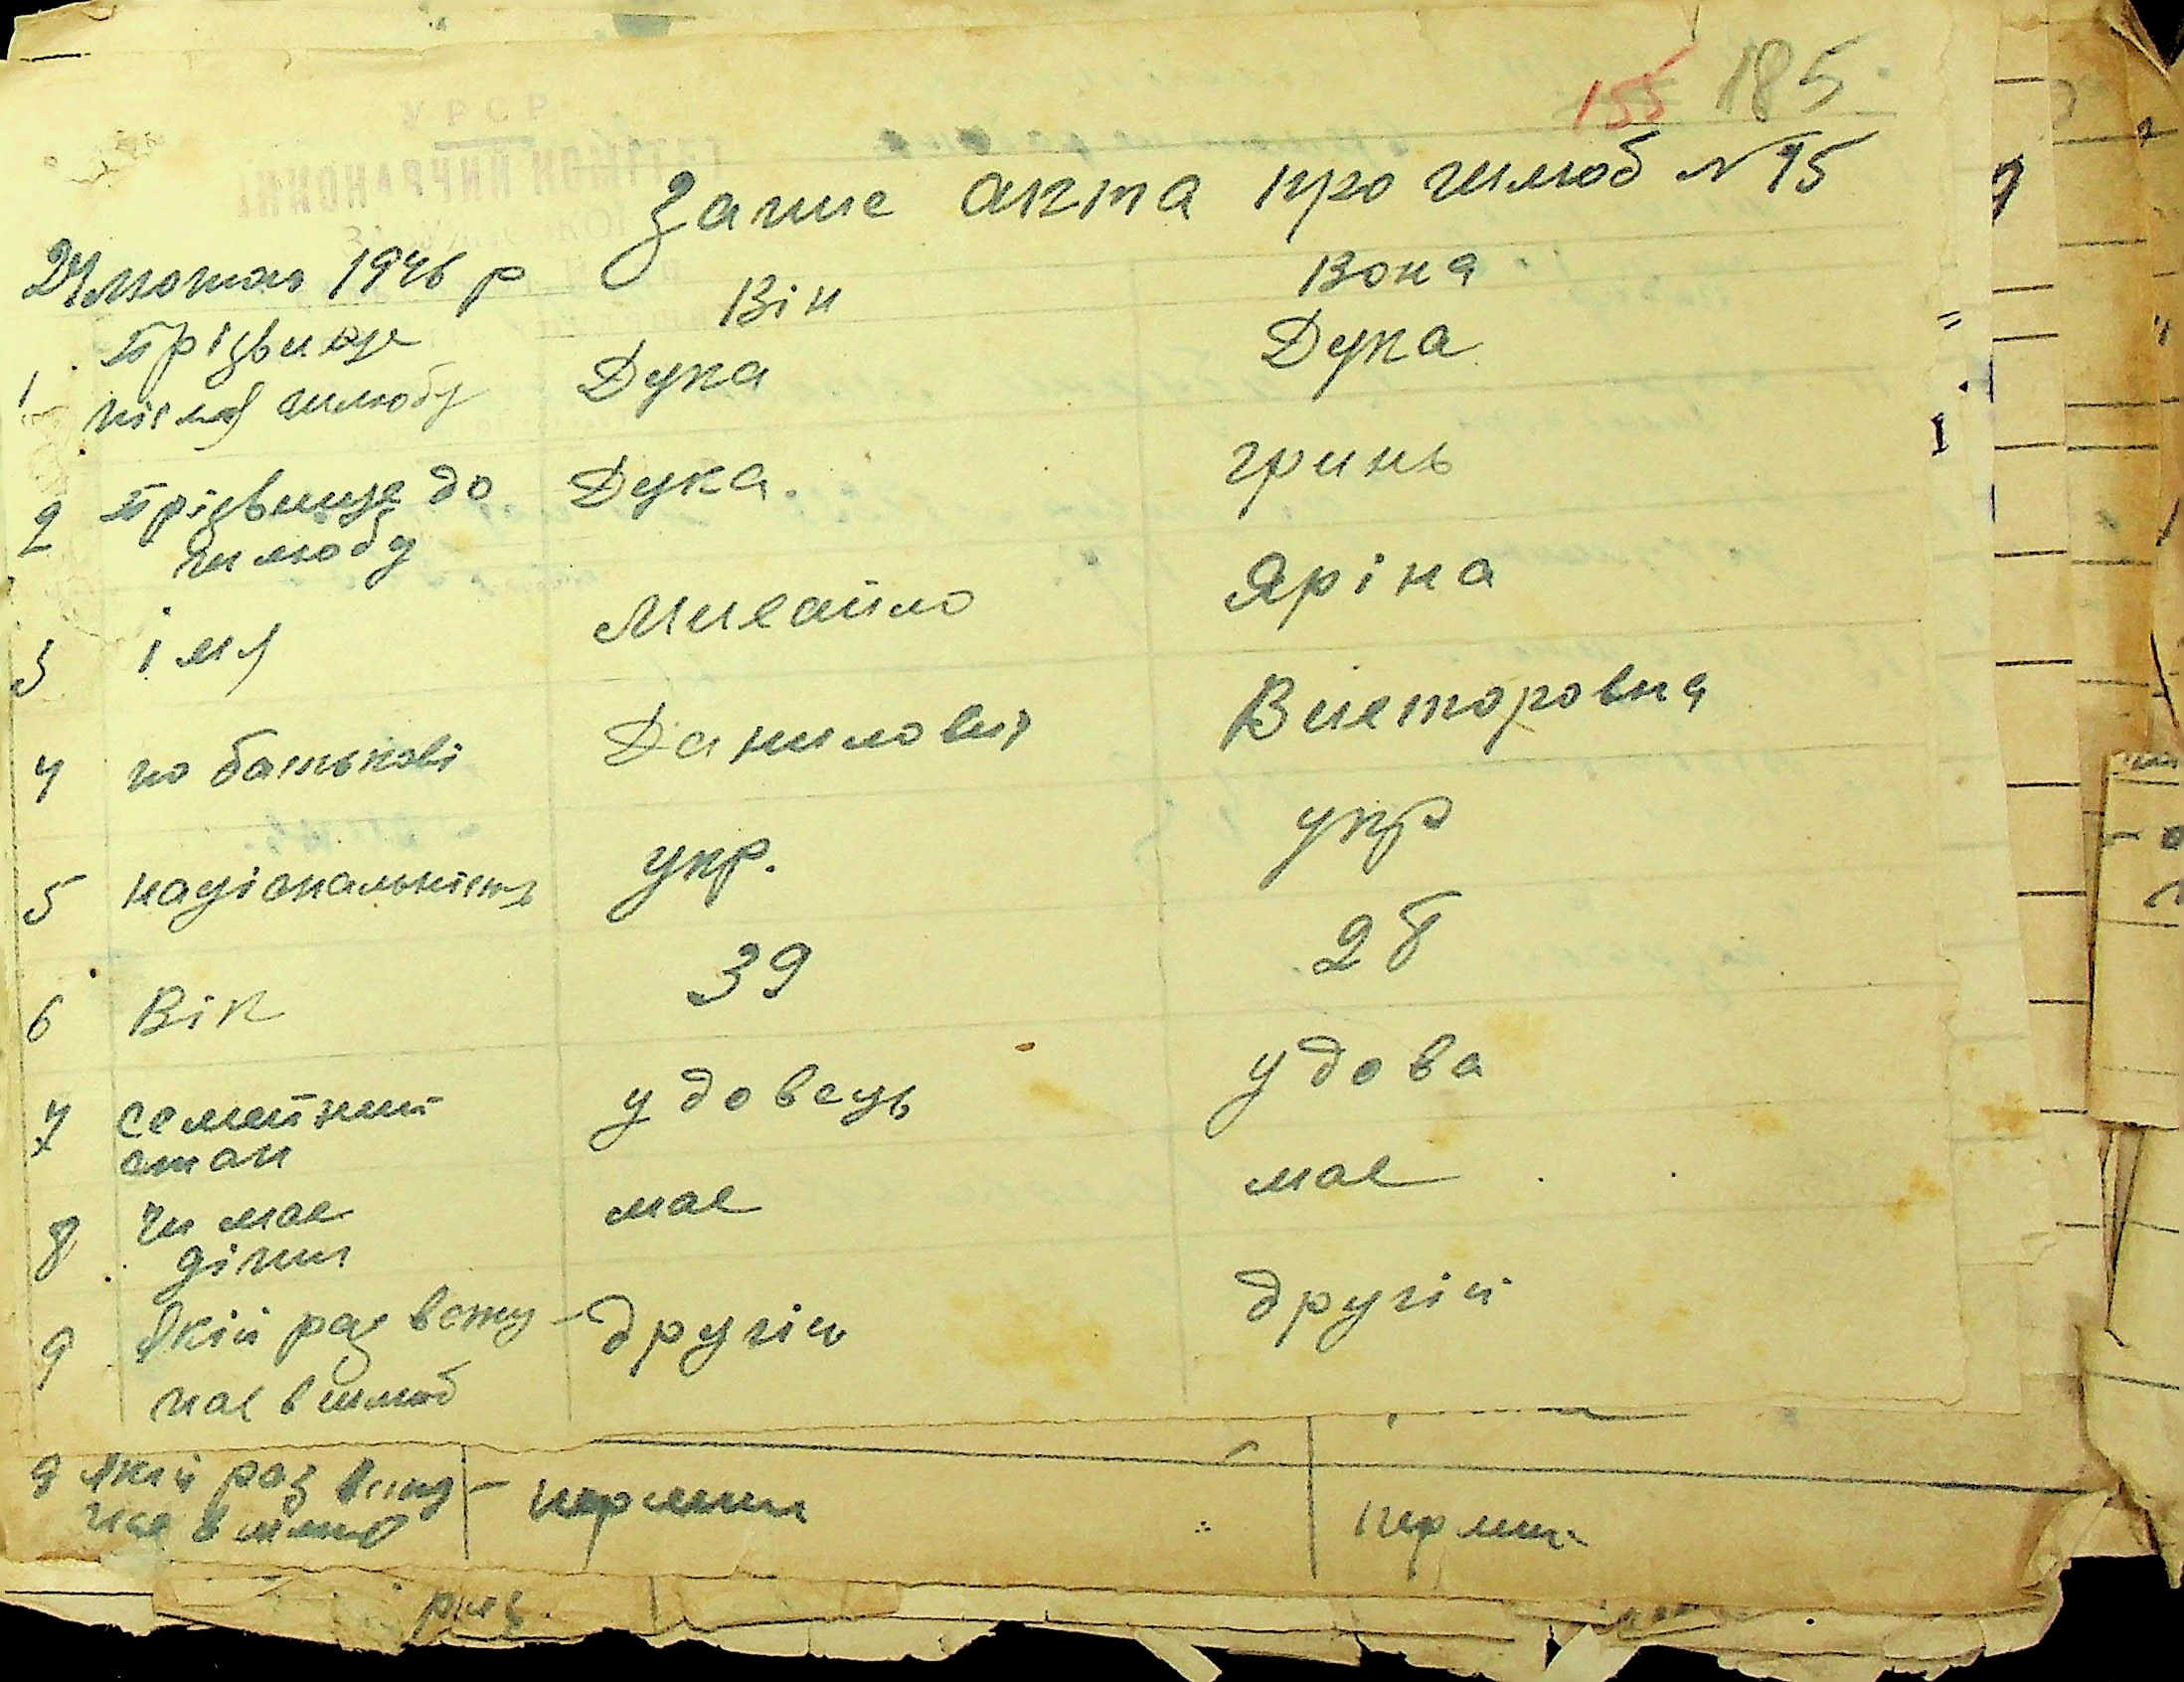 155 185
Запис акта про шлюб N 15
24 лютого 1946 р
Він Вона
1 Прізвище після шлюбу Дука Дука
2 Прізвище до шлюбу Дука. Гринь
3 імя Михайло Яріна
4 по батькові Данилович Вікторовна
5 національність укр. укр
6 Вік 39 28
7 семейний стан удовець удова
8 Чи має діти має має
9 Якій раз всту- другій другій
пає в шлюб
9 Якій раз всту- перший перший
пає в шлюб